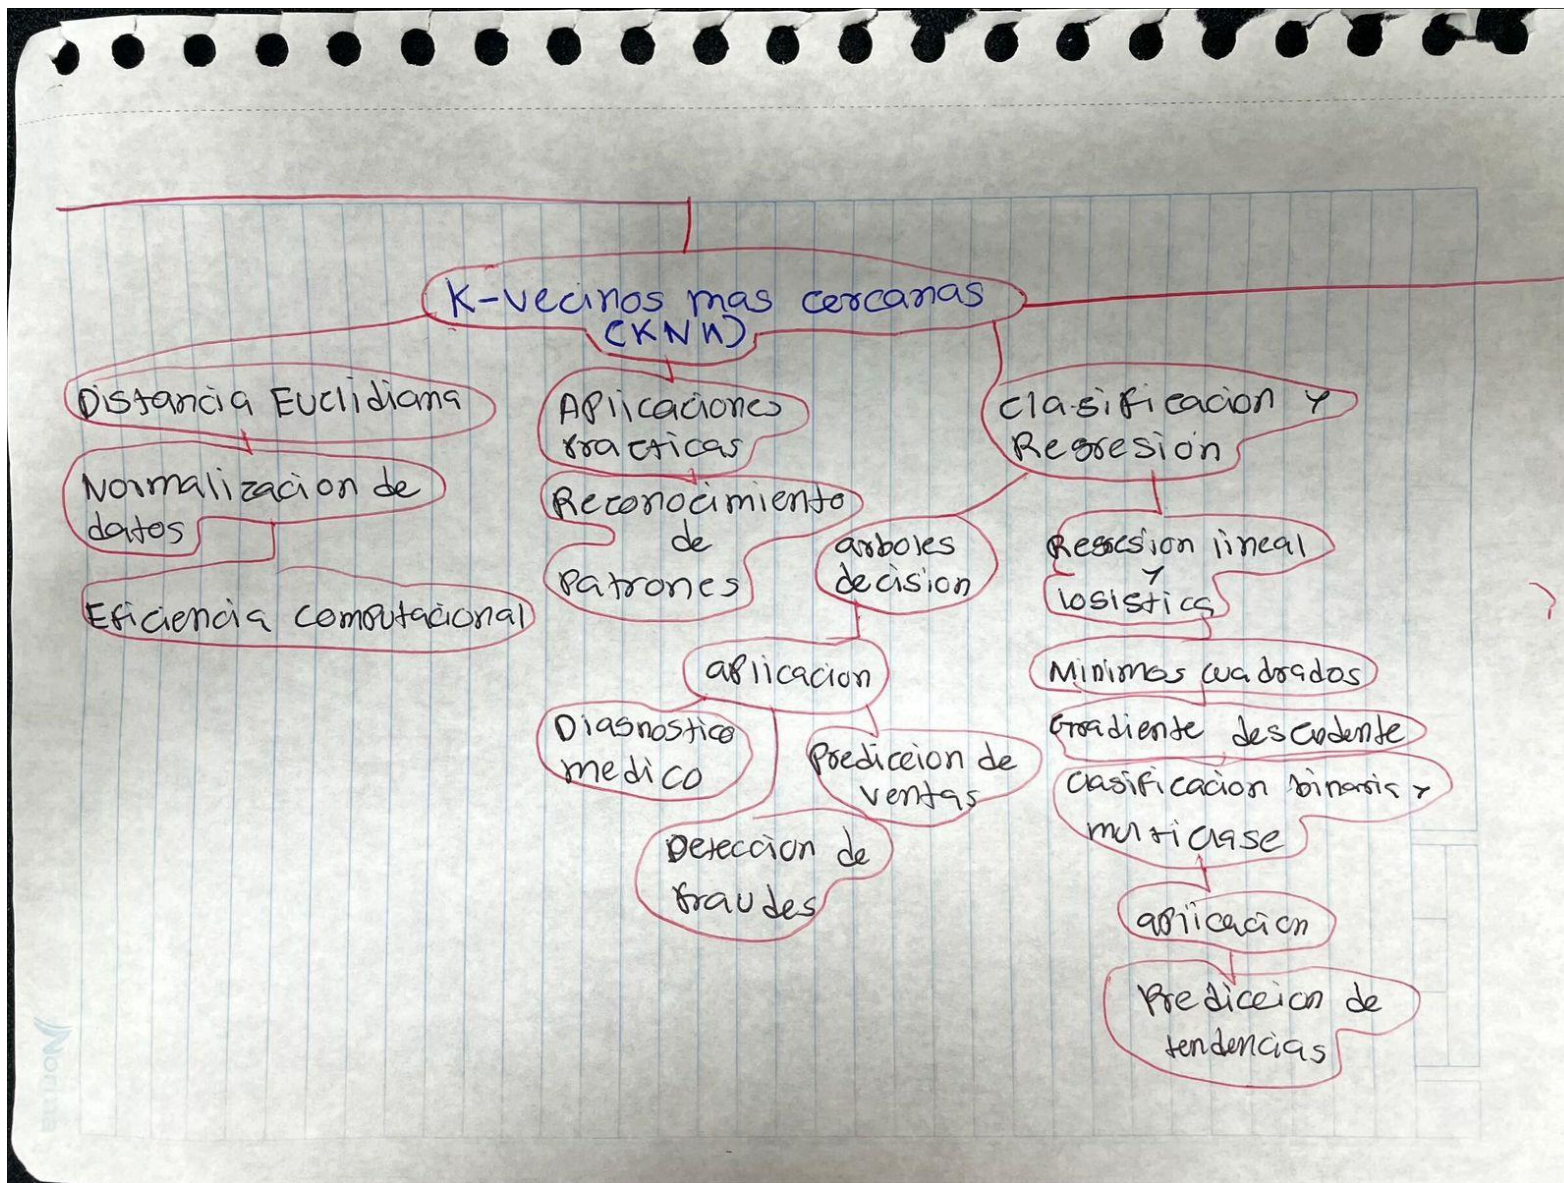 K-vecinos mas cercanas
(KNN)
Distancia Euclidiana
Normalizacion de
datos
Eficiencia computacional
Aplicaciones
Practicas
Reconocimiento
de
Patrones
Clasificacion y
Regresion
arboles
decision
aplicacion
Diagnostico
medico
Prediccion de
ventas
Deteccion de
fraudes
Regresion lineal
y
logistica
Minimos cuadrados
Gradiente descedente
Clasificacion binaria y
multiclase
aplicacion
Prediccion de
tendencias
Norma